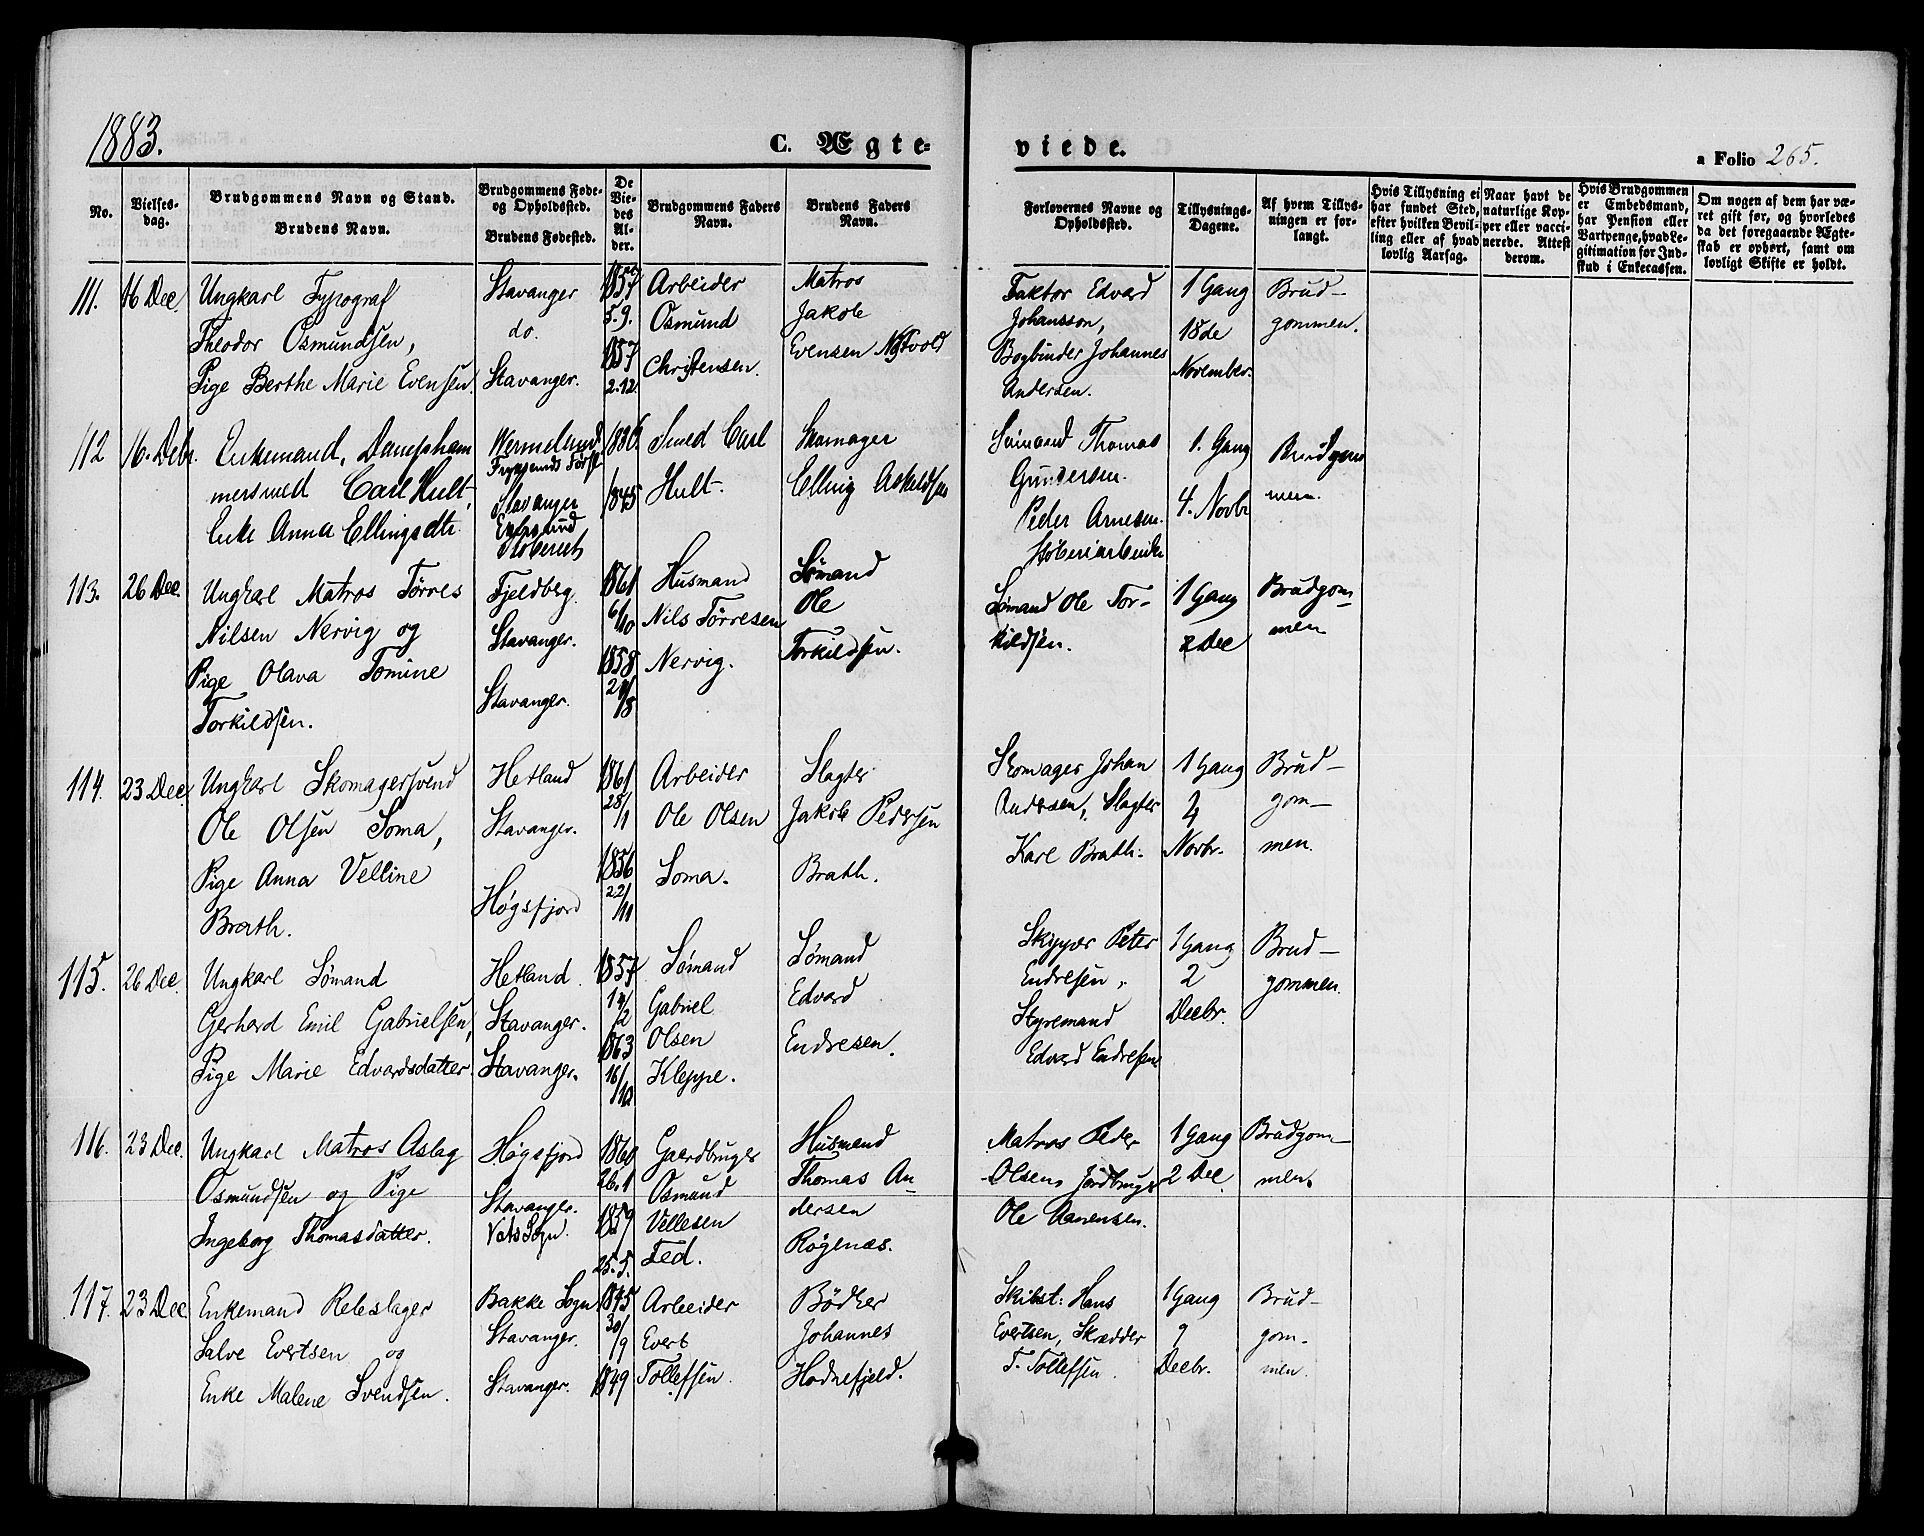 1883.
C. Ægte-
viede.
a Folio 265.
No.
Vielses-
dag.
Brudgommens Navn og Stand.
Brudens Navn.
Brudgommens Føde-
og Opholdssted.
Brudens Fødested.
De
Vie-
des
Al-
der.
Brudgommens Faders
Navn.
Brudens Faders
Navn.
Forlovernes Navne og
Opholdssted.
Tillysnings-
Dagene.
Af hvem Tillys-
ningen er for-
langt.
Hvis Tillysning ei
har fundet Sted,
efter hvilken Bevil-
ling eller af hvad
lovlig Aarsag.
Naar havt de
naturlige Kop-
per eller vacci-
nerede. Attest
derom.
Hvis Brudgommen
er Embedsmand,
har Pension eller
Vartpenge, hvad Le-
gitimation for Ind-
skud i Enkecassen.
Om nogen af dem har væ-
ret gift før, og hvorledes
da det foregaaende Ægte-
skab er ophørt, samt om
lovligt Skifte er holdt.
111.
16 Dec.
Ungkarl Typograf
Theodor Osmundsen,
Pige Berthe Marie Evensen.
Stavanger
do.
Stavanger.
1857
3.9.
1857
2.12.
Arbeider
Osmund
Christensen.
Matros
Jakob
Evensen
Faktor Edvard
Johansson,
Bogbinder Johannes
Andersen.
1 Gang
18de
November.
Brud-
gommen.
112
16. Debr.
Enkemand, Dampham
mersmed Carl Hult,
Enke Anna Ellingsdtr
Wermeland
Stavanger
1845
Smed Carl
Hult.
Skomager
Elling Askeldsen
Sømand Thomas
Gundersen.
Peder Arnesen.
Støberiarbeider
1. Gang
4. Novbr
Brudgom
men.
113.
26 Dec.
Ungkarl Matros Tørres
Nilsen Nervig og
Pige Olava Tomine
Torkildsen.
Fjeldberg.
Stavanger.
Stavanger.
1861
6/10
1858
Husmand
Nils Tørresen
Nervig.
Sømand
Ole
Torkildsen.
Sømand Ole Tor-
kildsen.
1 Gang
2 Dec
Brudgom-
men
114.
23 Dec.
Ungkarl Skomagersvend
Ole Olsen Soma,
Pige Anna Velline
Brath.
Hetland
Stavanger.
Høgsfjord
1861
28/1
1856
22/11
Arbeider
Ole Olsen
Soma.
Slagter
Jakob Pedersen
Brath.
Skomager Johan
Andersen, Slagter
Karl Brath.
1 Gang
4
Novbr.
Brud-
gom-
men.
115.
26 Dec.
Ungkarl Sømand
Gerhard Emil Gabrielsen,
Pige Marie Edvardsdatter.
Hetland.
Stavanger.
Stavanger.
1857
14/2
1863
16/12
Sømand
Gabriel
Olsen
Kleppe.
Sømand
Edvard
Endresen.
Skipper Peter
Endresen,
Styremand
Edvard Endresen
1 Gang
2
Decbr.
Brud-
gommen.
116.
23 Dec.
Ungkarl Matros Aslag
Osmundsen og Pige
Ingeborg Thomasdatter.
Høgsfjord
Stavanger.
Nats Sogn.
1860
26.1
1859
25.5.
Gaardbruger
Osmund
Vellesen
Fed.
Husmand
Thomas An-
dersen
Røgenes.
Matros Peder
Olsen, Jordbruger
Ole Aanensen.
1 Gang
2 Dec
Brudgom-
men.
117.
23 Dec.
Enkemand Rebslager
Salve Evertsen og
Enke Malene Svendsen.
Bakke Sogn
Stavanger.
Stavanger.
1845
30/9
1849
Arbeider
Evert
Tollefsen.
Bødker
Johannes
Hodnefjeld.
Skibst: Hans
Evertsen, Skrædder
T. Tollefsen.
1 Gang
9
Decbr.
Brud-
gom-
men.